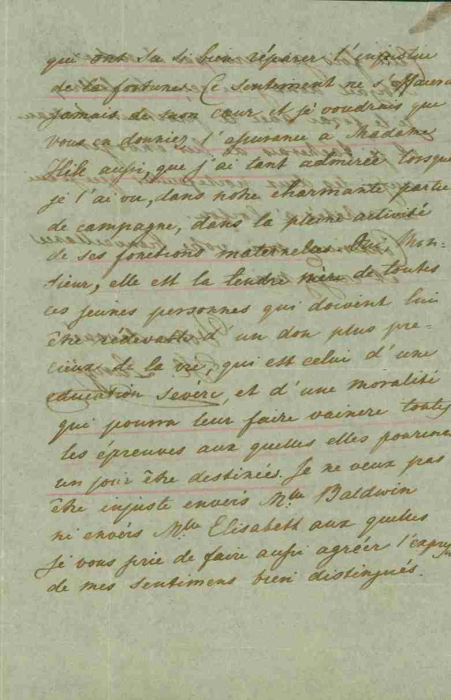 qui ont su si bien réparer l'injustice
de la fortune. Ce sentiment ne s'effacera
jamais de mon cœur, et je voudrais que
vous en donniez l'assurance à Madame
Hill aussi, que j'ai tant admirée lorsque
je l'ai vu, dans notre charmante partie
de campagne, dans la pleine activité
de ses fonctions maternelles. Oui, Mon-
sieur, elle est la tendre mère de toutes
ces jeunes personnes qui doivent lui
être rédevables d'un don plus pré-
cieux de la vie, qui est celui d'une
education sevère, et d'une moralité
qui pourra leur faire vaincre toutes
les épreuves aux quelles elles pourront
un jour être destinées. Je ne veux pas
être injuste envers Mlle Baldwin
ni envers Mlle Elisabeth aux quelles
je vous prie de faire aussi agréer
de mes sentimens bien distingués.